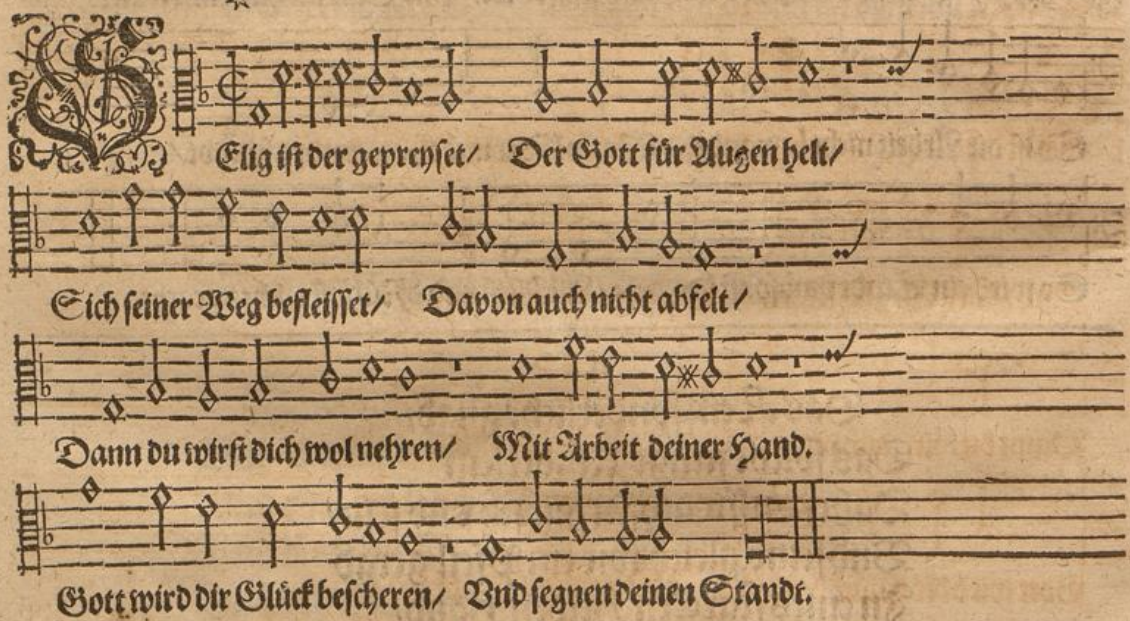 SElig ist der gepreyset/ Der Gott für Augen helt/
Sich seiner Weg befleisset/ Davon auch nicht abfelt/
Dann du wirst dich wol nehren/ Mit Arbeit deiner Hand.
Gott wird dir Glück bescheren/ Vnd segnen deinen Standt.